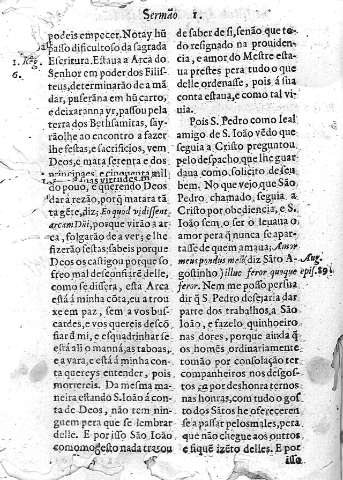 Sermão 1.
podeis empecer. Notay hũ
passo dificultoso da sagrada
1. Reg. 6.
Escritura. Estaua a Arca do
Senhor em poder dos Filis-
teus, determinarão de a mã
dar, puserãna em hũ carro,
e deixaranna yr, passou pela
terra dos Bethsamitas, say-
rãolhe ao encontro a fazer-
lhe festas, e sacrificios, vem
Deos, e mata setenta e dos
principaes, e cincoenta mil
do pouo, e querendo Deos
dar a rezão, porq̃ matara tã
ta gẽte, diz; Eo quod vidissent
arcam Dñi, porque virão a ar
ca, folgarão de a ver; e lhe
fizerão festas; sabeis porque
Deos os castigou porque so-
freo mal desconfiar ẽ delle,
como se dissera, esta Arca
està á minha cõta, eu a trou-
xe em paz, sem a vos bus-
cardes, e vos quereis desco-
friar d mi, e esquadrinhar se
està ali o manná, as taboas,
e a vara, e està á minha con-
ta quereys entender, pois
morrereis. Da mesma ma-
neira estando S. Ioão á con-
ta de Deos, não tem nin-
guem pera que se lembrar
delle. E por isso São Ioão
como mogesto nada tratou
de saber de si, senão que to
do resignado na prouiden-
cia, e amor do Mestre esta-
ua prestes pera tudo o que
delle ordenasse, pois á sua
conta estaua, e como tal vi-
uia.
Pois S. Pedro como leal
amigo de S. Ioão vẽdo que
seguia a Cristo preguntou
pelo despacho, que lhe guar
daua como solicito de seu
bem. No que vejo, que São
Pedro, chamado, seguia a
Cristo por obediencia, e S.
Ioão sem o ser o leuaua o
amor pera q̃ nunca se apar-
tasse de quem amaua; Amor
meus pondus meũ; diz Sãto A-
gostinho) illuc feror quoque
Aug. epis. 89
feror. Nem me posso persua
dir q̃ S. Pedro desejaria dar
parte dos trabalhos, a São
Ioão, e fazelo quinheiro
nas dores, porque ainda q̃
os homẽs ordinariamente
tomão por consolação ter
companheiros nos desgos-
tos, e a por deshonra ternos
nas honras, com tudo o gos
to dos Sãtos he oferecerem
se a passar pelos males, pera
que não chegue aos outros
e fique izẽto delles. E por
isso